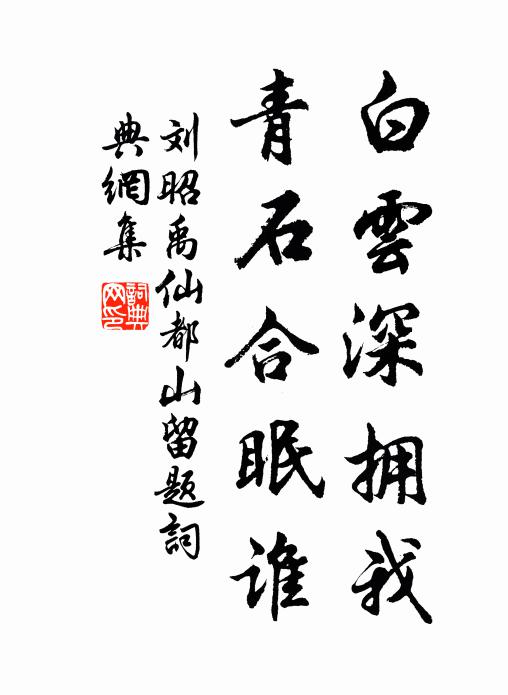 白雲深拥我
青石合眠谁
刘昭禹仙都山留题詞
典網集
詞典网印